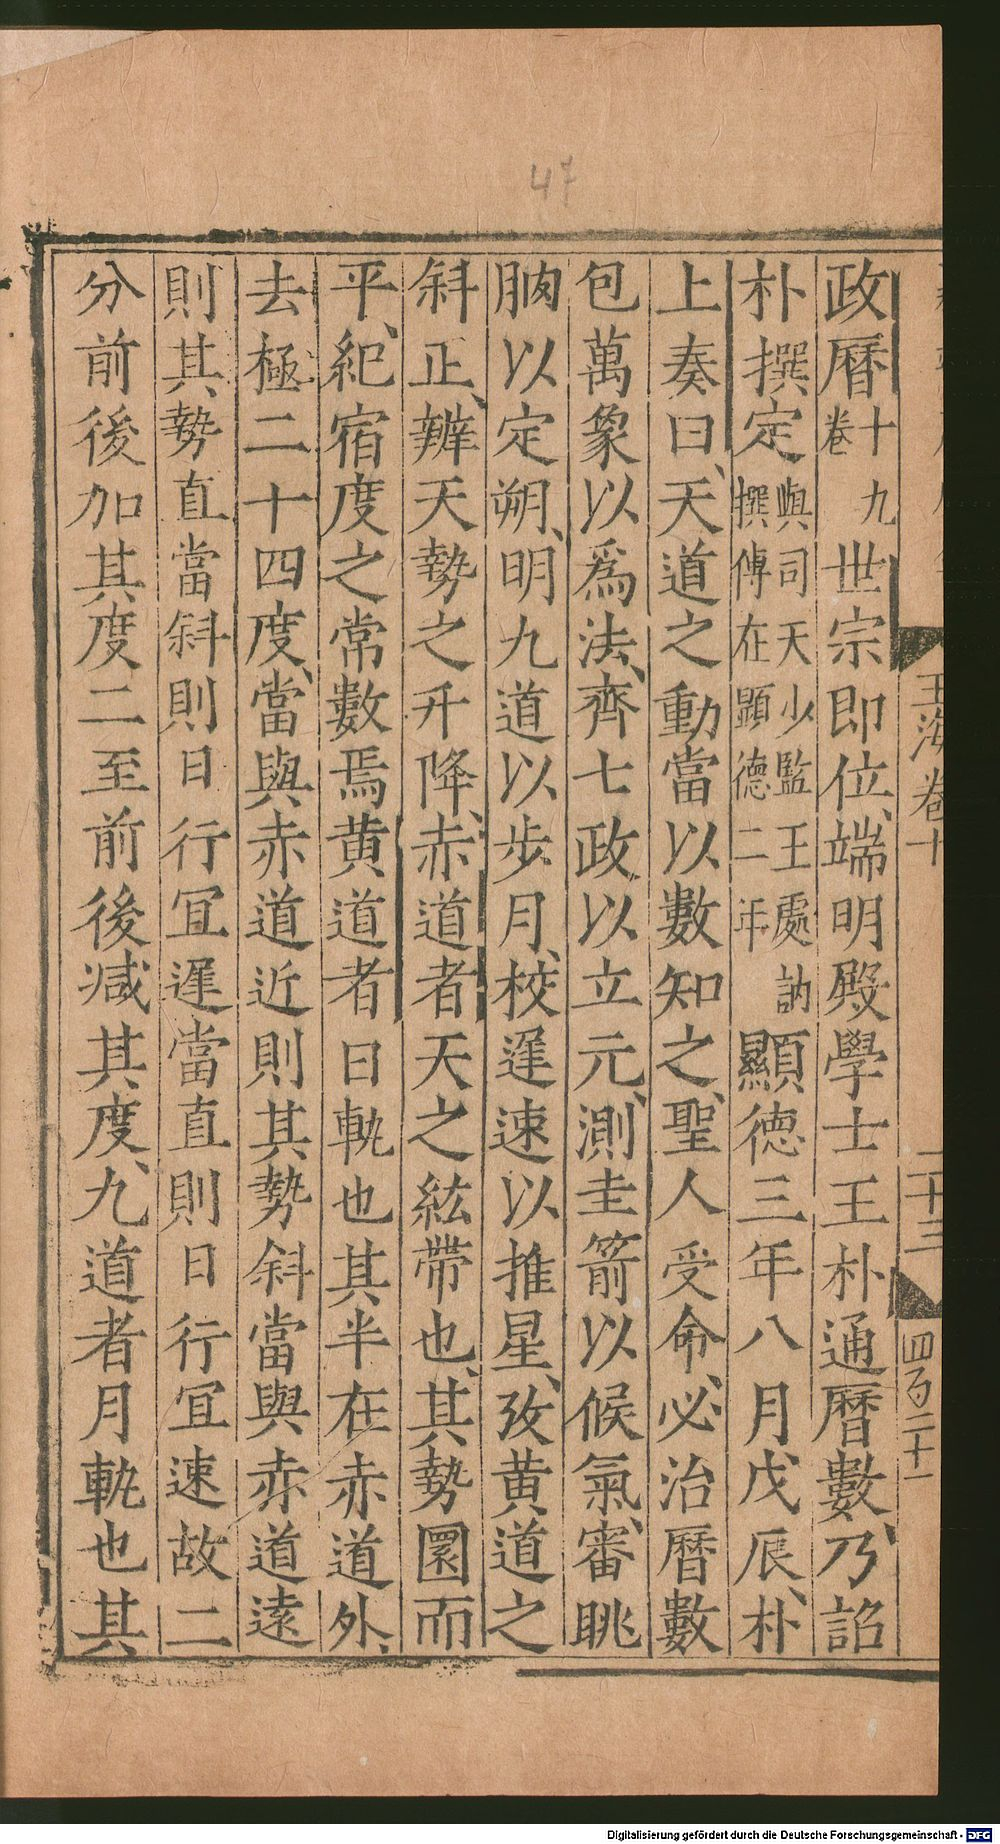 47
玉海卷十
二十三
四百二十一
政曆十九卷世宗即位端明殿學士王朴通曆數乃詔
朴撰定與司天少監王處訥撰傳在顯德二年顯德三年八月戊辰朴
上奏曰天道之動當以數知之聖人受命必治曆數
包萬象以爲法齊七政以立元測圭箭以候氣審眺
朒以定朔明九道以步月校遲速以推星攷黄道之
斜正辨天勢之升降赤道者天之紘帶也其勢圜而
平紀宿度之常數焉黄道者日軌也其半在赤道外
去極二十四度當與赤道近則其勢斜當與赤道遠
則其勢直當斜則日行宜遲當直則日行宜速故二
分前後加其度二至前後減其度九道者月軌也其
Digitalisierung gefördert durch die Deutsche Forschungsgemeinschaft - DFG